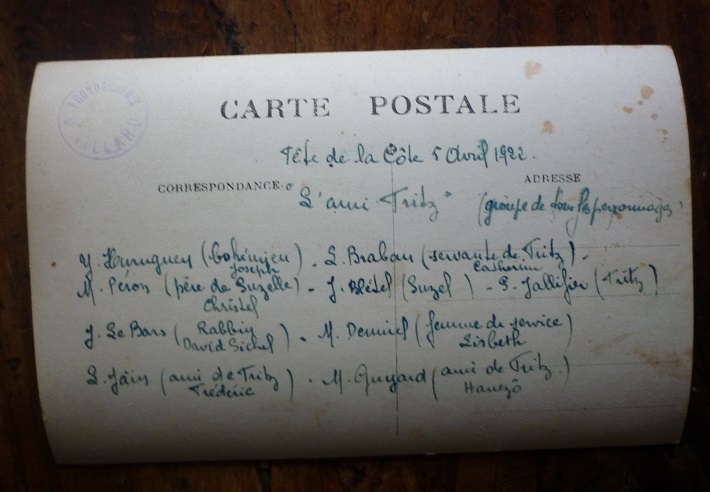 PHOTOGRAPHIE
VILLARD
CARTE POSTALE
Fête de la Côte 5 Avril 1922.
CORRESPONDANCE
ADRESSE
"L'ami Fritz" (groupe de tous les personnages)
Y. (bohémien Joseph) - L. Braban (servante de Fritz Catherine) -
M. Péron (père de Suzelle Christel) - J. Blétel (Suzel) - S. Jallifier (Fritz)
J. Le Bars (Rabbin David Sichel) - M. Denniel (femme de service Lisbeth)
L. Jain (ami de Fritz Frédéric) - M. Guyard (ami de Fritz Hanezô)